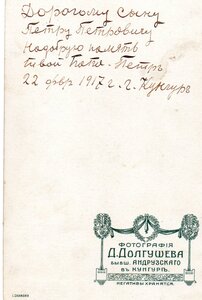 Дорогому сыну
Петру Петровичу
на добрую память
твой Папа. Петръ
22 февр 1917 г. г. Кунгуръ
ФОТОГРАФІЯ
Д. ДОЛГУШЕВА
БЫВШ. АНДРУЗСКАГО
ВЪ КУНГУРѢ.
НЕГАТИВЫ ХРАНЯТСЯ.